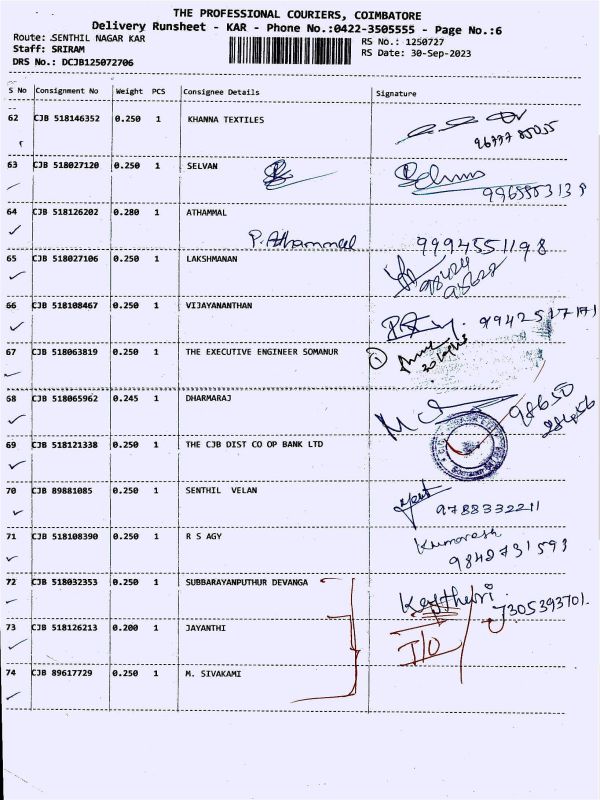 THE PROFESSIONAL COURIERS, COIMBATORE
Delivery Runsheet - KAR - Phone No.:0422-3505555 - Page No.:6
Route: SENTHIL NAGAR KAR
RS No.: 1250727
Staff: SRIRAM
RS Date: 30-Sep-2023
DRS No.: DCJB125072706
S No Consignment No Weight PCS Consignee Details Signature
62 CJB 518146352 0.250 1 KHANNA TEXTILES
96777 85055
63 CJB 518027120 0.250 1 SELVAN
Selvan
64 CJB 518126202 0.280 1 ATHAMMAL
P. Athammal 9994551198
65 CJB 518027106 0.250 1 LAKSHMANAN
66 CJB 518108467 0.250 1 VIJAYANANTHAN
9942517171
67 CJB 518063819 0.250 1 THE EXECUTIVE ENGINEER SOMANUR
1
68 CJB 518065962 0.245 1 DHARMARAJ
98650
69 CJB 518121338 0.250 1 THE CJB DIST CO OP BANK LTD
70 CJB 89881085 0.250 1 SENTHIL VELAN
9788332211
71 CJB 518108390 0.250 1 R S AGY
Kumaresh
9842731593
72 CJB 518032353 0.250 1 SUBBARAYANPUTHUR DEVANGA
7305393701.
73 CJB 518126213 0.200 1 JAYANTHI
I/O
74 CJB 89617729 0.250 1 M. SIVAKAMI